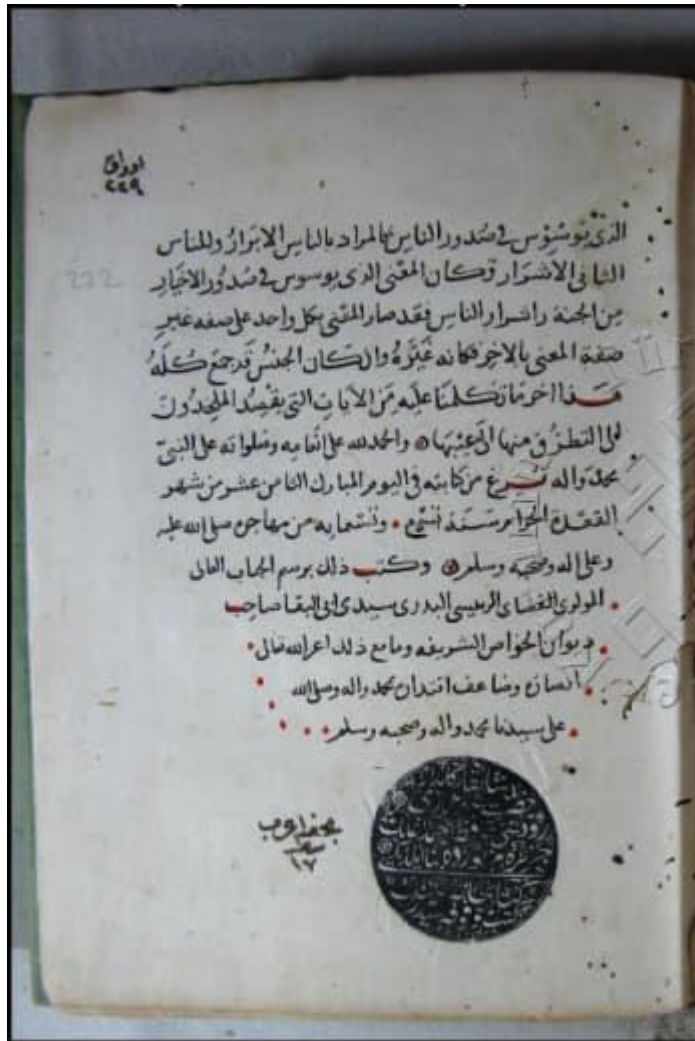 اوراق
٢٢٩
222
الذى يوسوس فى صدور الناس فالمراد بالناس الابرار وللناس
الثانى الاشرار وكان المعنى الذى يوسوس فى صدور الاخيار
من الجنة واشرار الناس فقد صار المعنى بكل واحد على صفه غير
صفة المعنى بالاخر فكانه غيره وان كان الجنس قد جمع كله
هذا اخر ما تكلمنا عليه من الايات التى يقصد الملحدون
الى التطرق منها الى عيبها والحمد لله على انعامه وصلواته على النبى
محمد واله فرغ من كتابته فى اليوم المبارك الثامن عشر من شهر
القعدة الحرام سنة وتسعمايه من مهاجره صلى الله عليه
وعلى اله وصحبه وسلم وكتب ذلك برسم الجناب العالى
المولوى القضاى الرييسى البدرى سيدى ابى البقا صاحب
ديوان الخواص الشريفه وما مع ذلك اعز الله تعالى
انصاره وضاعف اقتداره بمحمد واله وصلى الله
على سيدنا محمد واله وصحبه وسلم
١٧